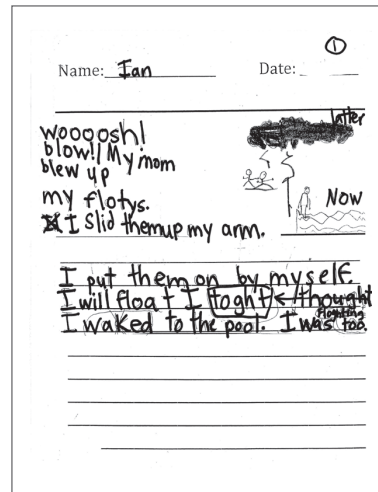 ①
Name: Ian Date:
latter
woooosh!
blow!! My mom
blew up
my flotys.
Now
I Slid themup my arm.
I put them on by myself.
I will float I toght ← thought
floghting
I waked to the pool. I was too.